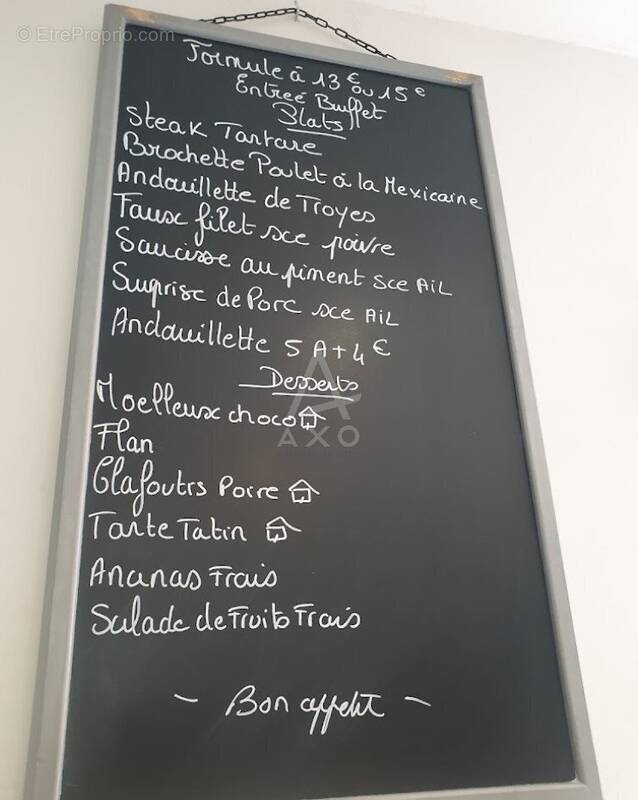 © EtreProprio.com
Formule à 13 € ou 15 €
Entreé Buffet
Plats
Steak Tartare
Brochette Poulet à la Mexicaine
Andouillette de Troyes
Faux filet sce poivre
Saucisse au piment sce AiL
Suprise de Porc sce AiL
Andouillette 5 A + 4 €
Desserts
Moelleux choco
Flan
Clafoutis Poire
Tarte Tatin
Ananas Frais
Salade de Fruits Frais
AXO
- Bon appetit -